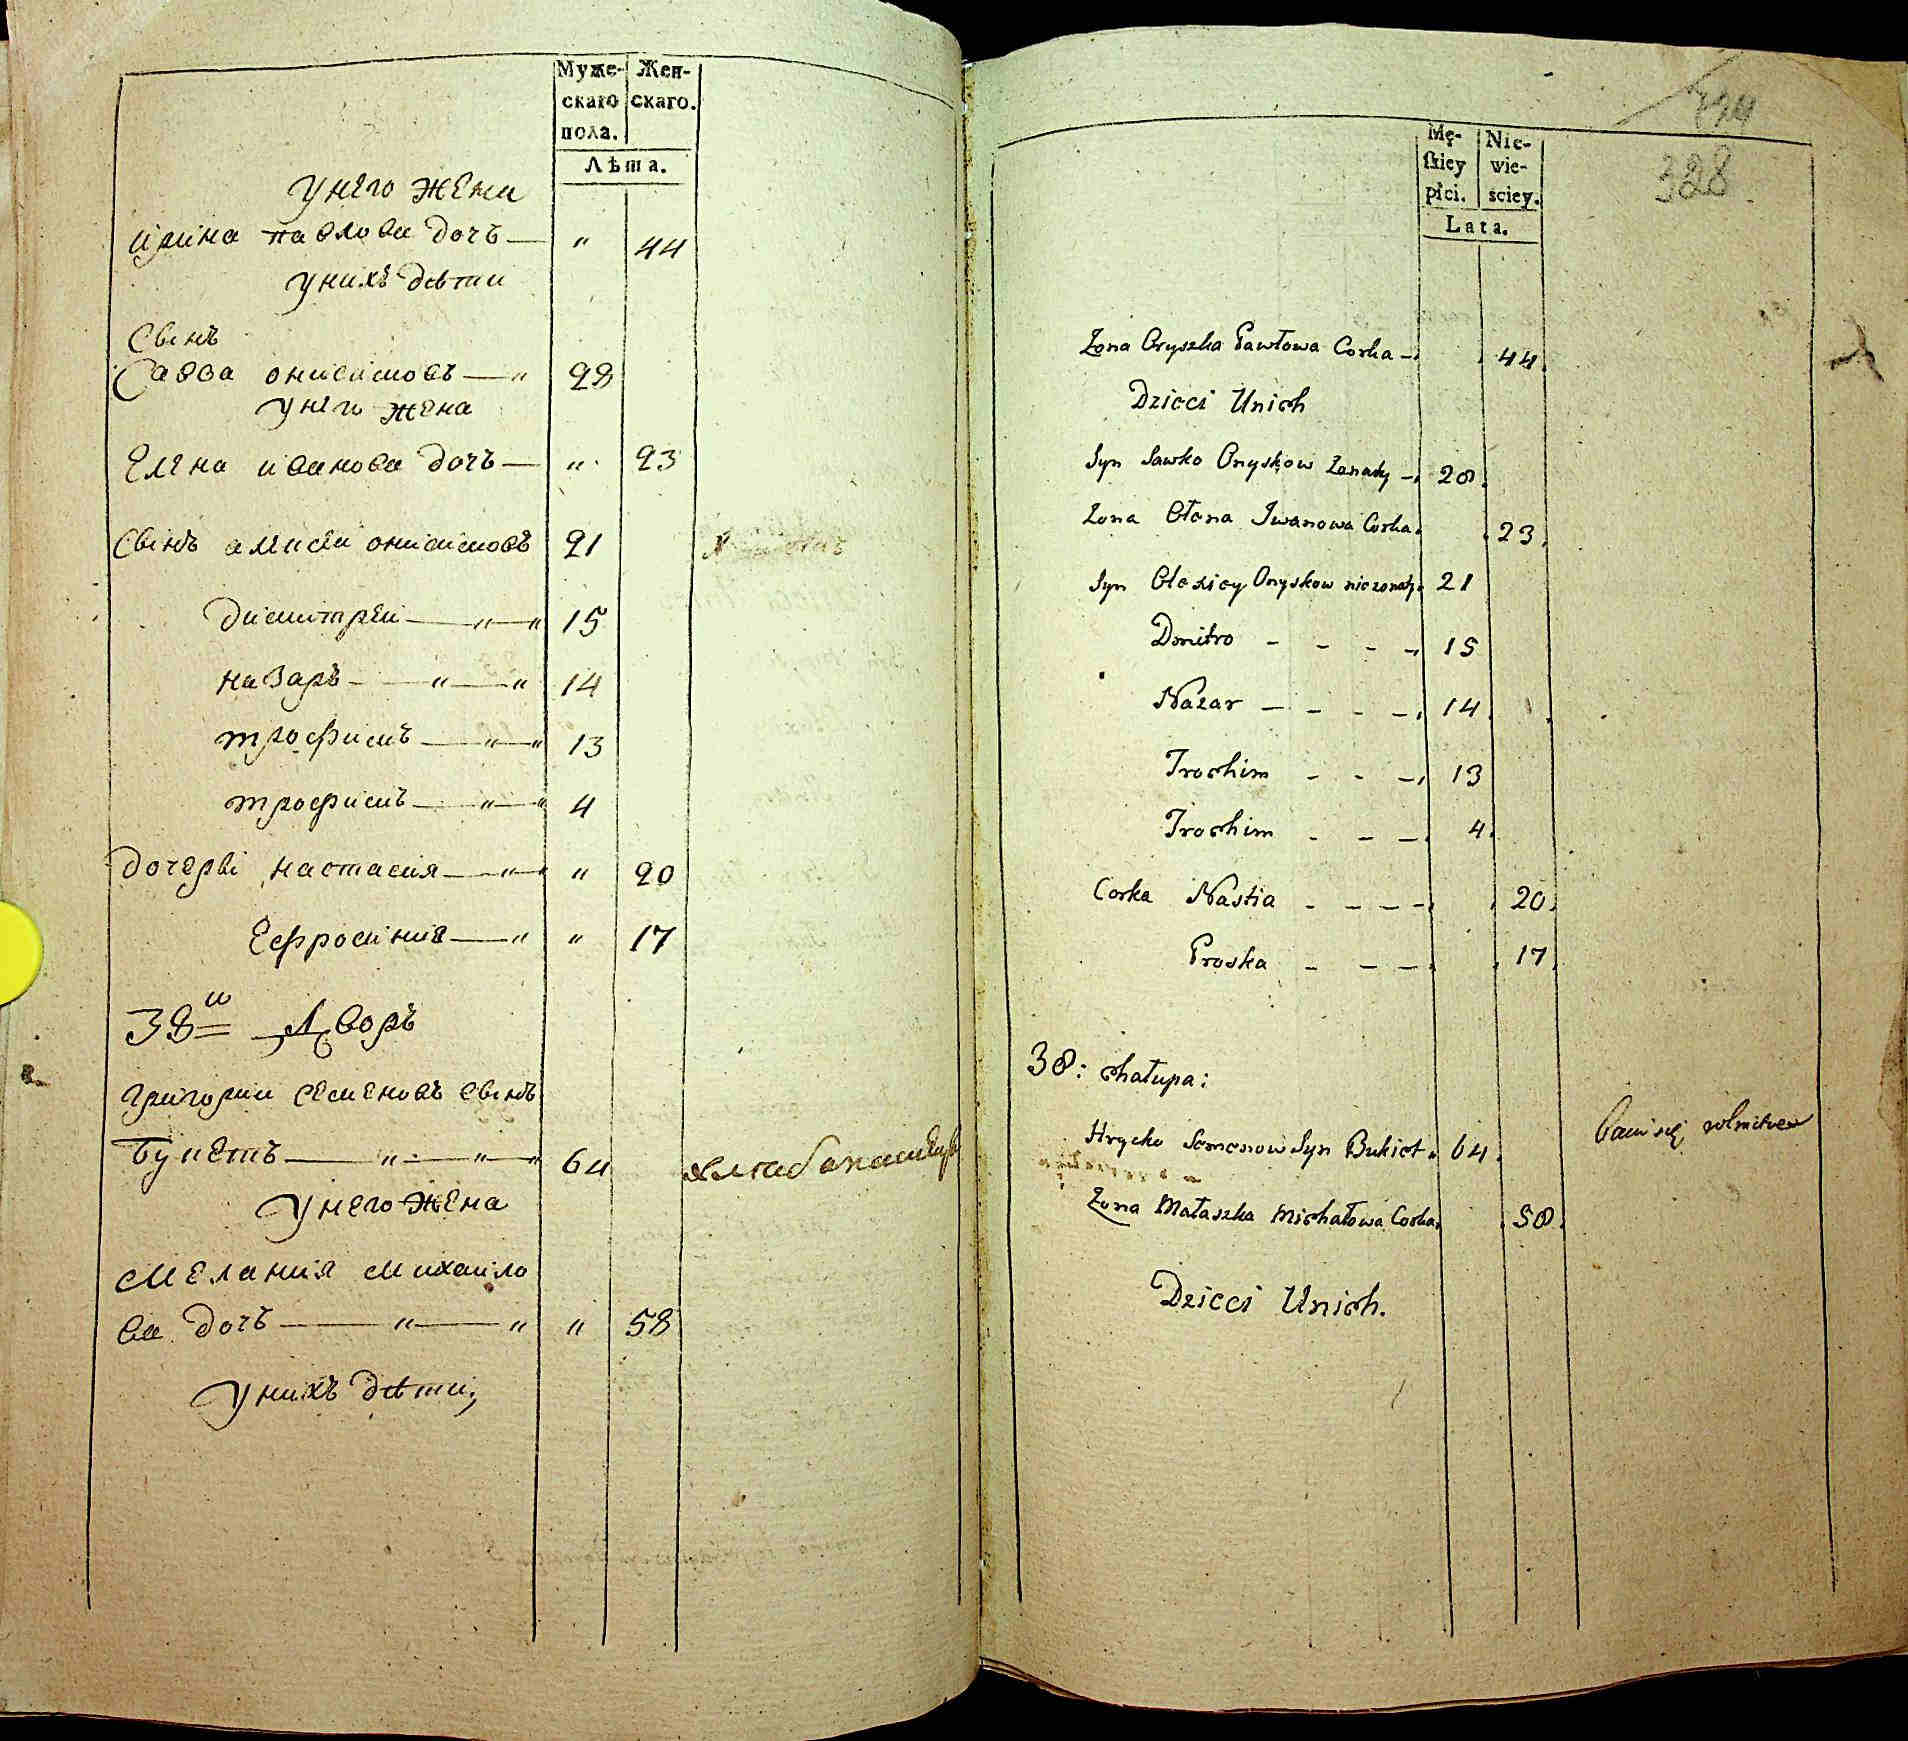 Муже-
скаго
пола.
Жен-
скаго.
Лѣта.
У него жена
Ирина павлова дочъ — „ 44
У нихъ дѣти
Сынъ
Савва онисимовъ — „ 28
У него жена
Елена иванова дочъ — „ 23
Сынъ алексей онисимовъ 21
Димитрей — „ — „ 15
назаръ — „ — „ 14
трофимъ — „ — „ 13
трофимъ — „ — „ 4
Дочери настасия — „ „ 20
Ефросиния — „ „ 17
38й Дворъ
Григории семеновъ сынъ
Букетъ — „ — „ — „ 64 хлебопашецъ
У него жена
Мелания михаило
ва дочъ — „ — „ „ 58
У нихъ дѣти,
324
328
Mę-
skiey
płci.
Nie-
wie-
sciey.
Lata.
Zona Oryszka Pawłowa Corka 44.
Dzieci Unich
Syn Sawko Onyskow Zonaty 28.
Zona Ołena Iwanowa Corka 23.
Syn Olexiey Onyskow niezonaty 21
Dmitro - - - - 15
Nazar - - - - 14.
Trochim - - - 13
Trochim - - - 4.
Corka Nastia - - - - 20.
Proska - - - - 17.
38: chałupa:
Hrycko Semenow Syn Bukiet 64. Bawi się rolnictwem
Zona Małaszka Michałowa Corka 58.
Dzieci Unich.